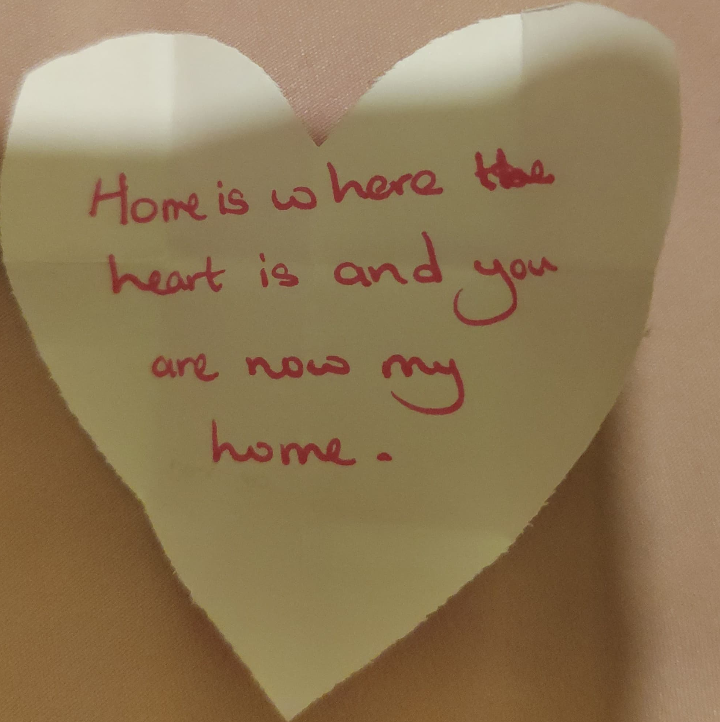 Home is where the
heart is and you
are now my
home.